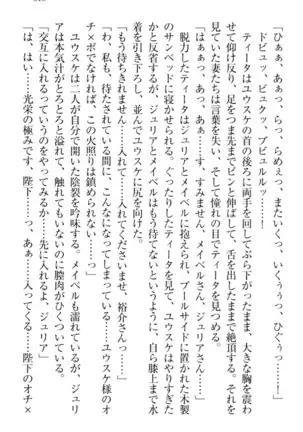 「ひぁぁ、あっ、らっ、らめぇっ、またいくっ、いくぅぅっ、ひぐぅっ……！」
ドピュッ、ビュクッ、ブピュルルッ……！
ティータはユウスケの首の後ろに両手を回してぶら下がったまま、大きな胸を震わ
せて仰け反り、足をつま先までピンと伸ばして、舌を出したままで絶頂する。それを
見ていた妻たちは言葉を失い、そして憧れの目でティータを見つめる。
「はぁぁっ、あっ、あぁ……す、すみません、メイベルさん、ジュリアさん……」
脱力したティータはジュリアとメイベルに抱えられ、プールサイドに置かれた木製
のサンベッドに寝かせられる。ぐったりしたティータを見て、ユウスケはやりすぎた
かと反省するが、ジュリアとメイベルはもう待ちきれないというように、自ら膝上まで水
着を引き下ろし、並んでユウスケに尻を向けてきた。
「もう待ちきれません……入れて……入れてくださいませ、裕介さんっ……」
「わ、私も、待たされている間に、こんなになってしまって……ユウスケ様のオ
チ×ポでなければ、この火照りは鎮められない……っ」
ユウスケは二人が自分で開いた陰裂を吟味する。メイベルも濡れているが、ジュリ
アは本気汁がとろとろと溢れて、触れてもいないのに膣肉がひくついている。
「交互に入れるっていうのをやってみるか……先に入れるよ、ジュリア」
「は、はい……光栄の極みです、陛下……っ、あぁっ……入ってくる……陛下のオチ×